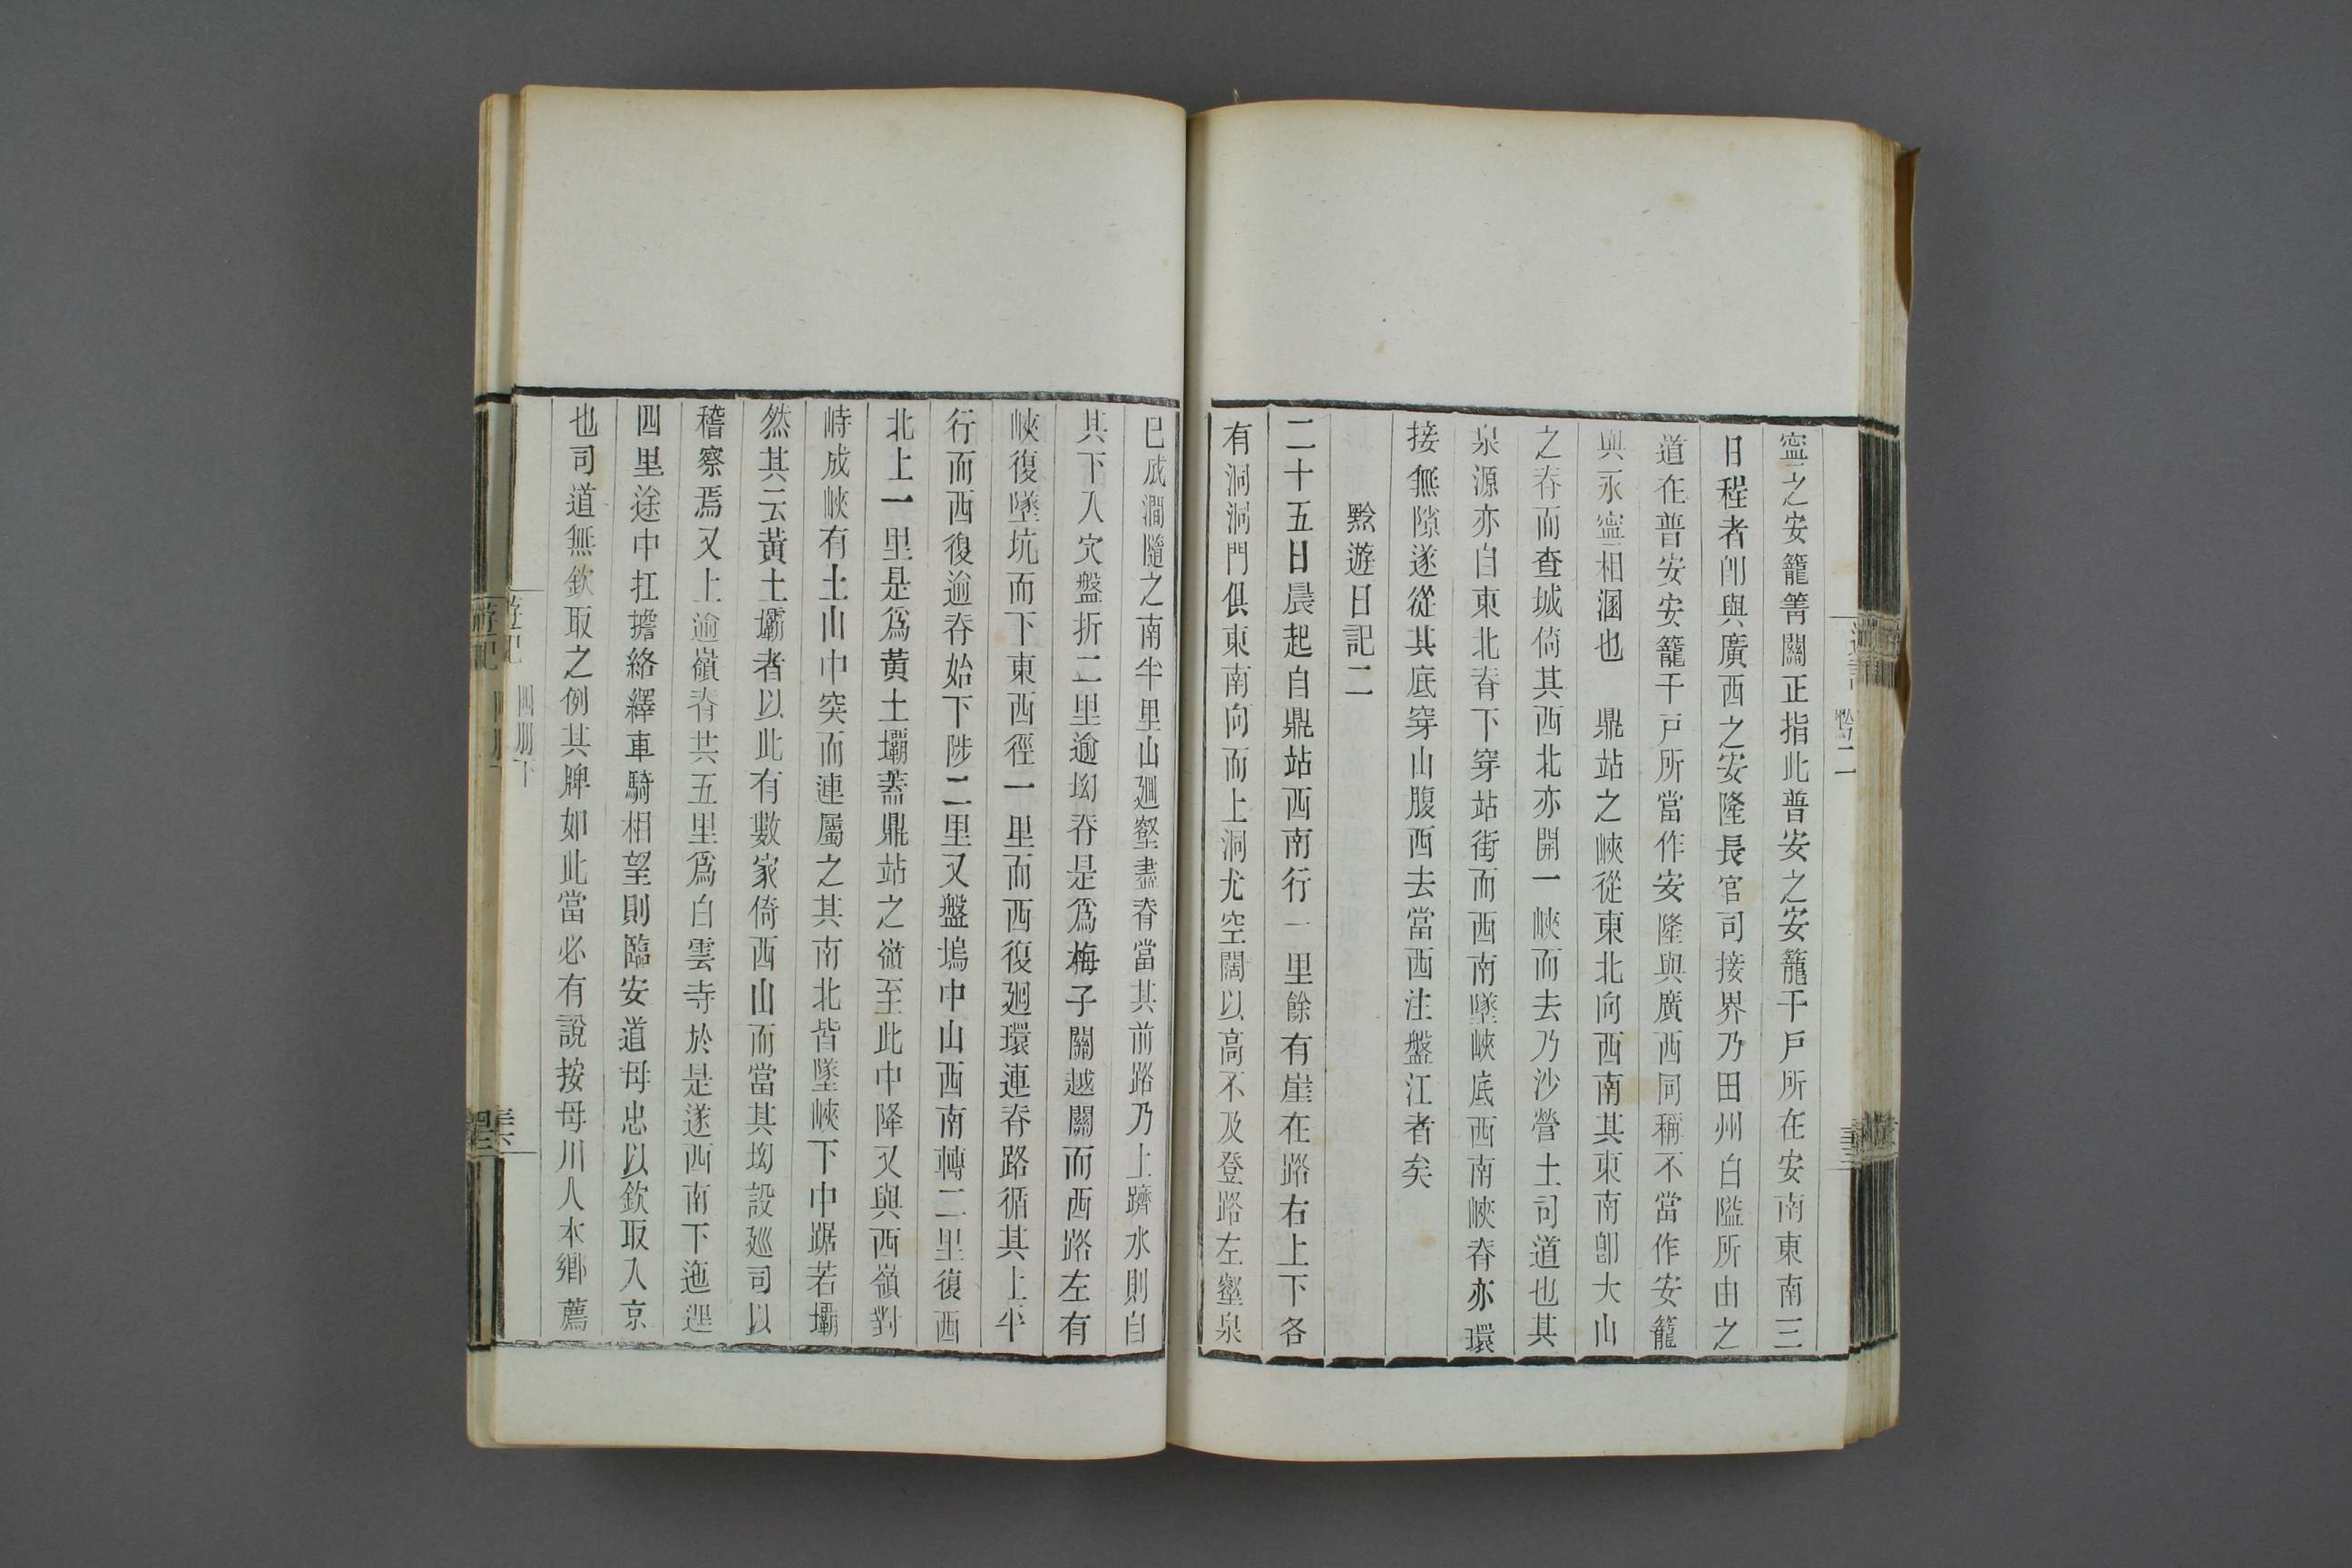 寧之安籠箐關正指此普安之安籠千戶所在安南東南三
日程者卽與廣西之安隆長官司接界乃田州白隘所由之
道在普安安籠千戶所當作安隆與廣西同稱不當作安籠
與永寧相溷也　鼎站之峽從東北向西南其東南卽大山
之脊而查城倚其西北亦開一峽而去乃沙營土司道也其
泉源亦自東北脊下穿站街而西南墜峽底西南峽脊亦環
接無隙遂從其底穿山腹西去當西注盤江者矣
黔遊日記二
二十五日晨起自鼎站西南行一里餘有崖在路右上下各
有洞洞門俱東南向而上洞尤空闊以高不及登路左壑泉
已成澗隨之南半里山廻壑盡脊當其前路乃上躋水則自
其下入穴盤折二里逾坳脊是爲梅子關越關而西路左有
峽復墜坑而下東西徑一里而西復廻環連脊路循其上半
行而西復逾脊始下陟二里又盤塢中山西南轉二里復西
北上一里是爲黃土壩蓋鼎站之嶺至此中降又與西嶺對
峙成峽有土山中突而連屬之其南北皆墜峽下中踞若壩
然其云黃土壩者以此有數家倚西山而當其坳設廵司以
稽察焉又上逾嶺脊共五里爲白雲寺於是遂西南下迤邐
四里途中扛擔絡繹車騎相望則臨安道母忠以欽取入京
也司道無欽取之例其牌如此當必有說按母川人本鄉薦
遊記
四册下